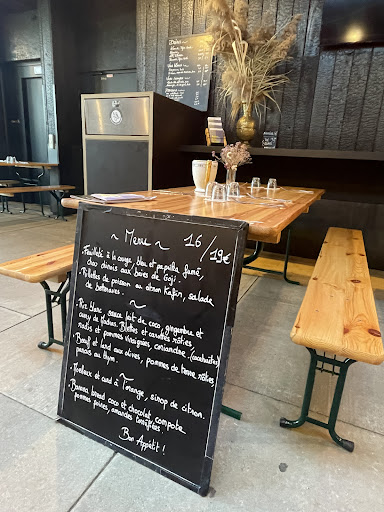 ~ Menu ~ 16/19€
• Feuilleté à la courge, bleu et paprika fumé,
chou chinois aux baies de Goji.
• Rillettes de poisson au citron Kafir, salade
de betteraves.
~
• Riz blanc, sauce lait de coco, gingembre et
curry de Madras. Blettes et carottes rôties,
radis et pommes vinaigrées, coriandre. (cacahuètes)
• Bœuf et lard aux olives, pommes de terre rôties
panais au thym.
~
• Moelleux et curd à l'orange, sirop de citron.
• Banana bread coco et chocolat, compote
pommes poires, amandes torréfiées.
Bon Appétit !